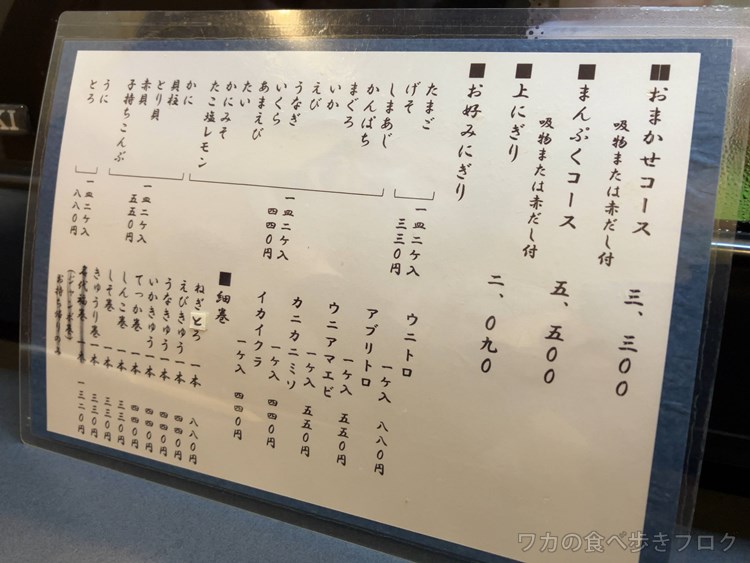 ■おまかせコース 三、三〇〇
吸物または赤だし付
■まんぷくコース 五、五〇〇
吸物または赤だし付
■上にぎり 二、〇九〇
■お好みにぎり
たまご
げそ
一皿二ケ入
三三〇円
しまあじ
かんぱち
まぐろ
いか
えび
うなぎ
いくら
あまえび
たい
かにみそ
たこ塩レモン
かに
一皿二ケ入
四四〇円
貝柱
とり貝
赤貝
子持ちこんぶ
一皿二ケ入
五五〇円
うに
とろ
一皿二ケ入
八八〇円
ウニトロ
一ケ入 八八〇円
アブリトロ
一ケ入 五五〇円
ウニアマエビ
一ケ入 五五〇円
カニカニミソ
一ケ入 四四〇円
イカイクラ
一ケ入 四四〇円
■細巻
ねぎとろ 一本 八八〇円
えびきゅう 一本 四四〇円
うなきゅう 一本 四四〇円
いかきゅう 一本 四四〇円
てっか巻 一本 四四〇円
しんこ巻 一本 三三〇円
しそ巻 一本 三三〇円
きゅうり巻 一本 三三〇円
名代福巻 一巻 一三二〇円
お持ち帰りのみ
ワカの食べ歩きブログ